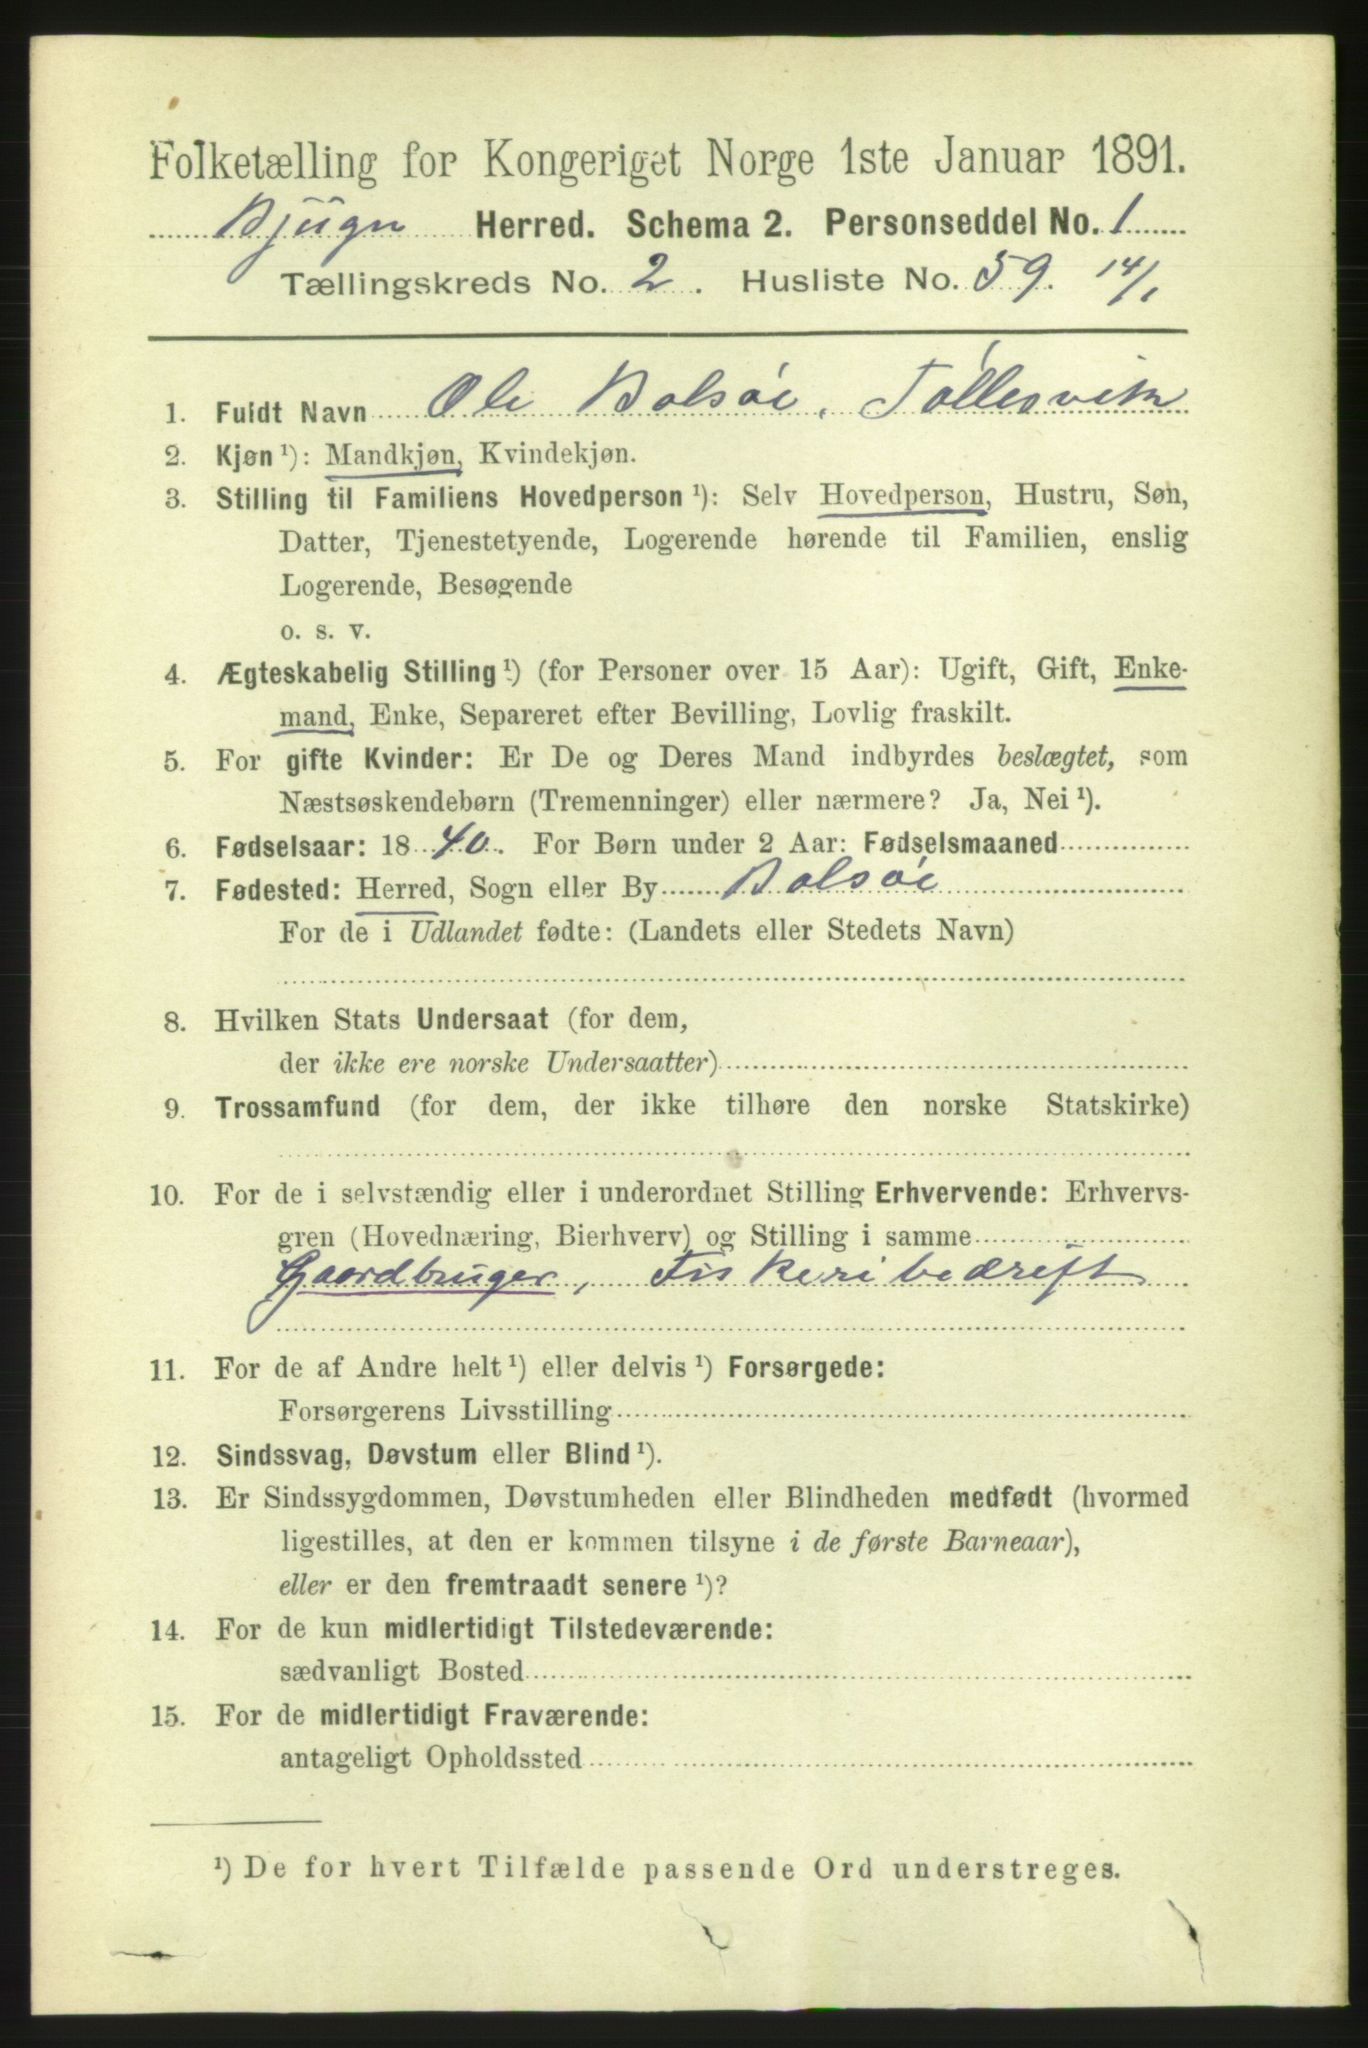 Folketælling for Kongeriget Norge 1ste Januar 1891.
Bjugn Herred. Schema 2. Personseddel No. 1
Tællingskreds No. 2. Husliste No. 59. 14/1
1. Fuldt Navn Ole Bolsøe, Tøllesvik
2. Kjøn ¹): Mandkjøn, Kvindekjøn.
3. Stilling til Familiens Hovedperson ¹): Selv Hovedperson, Hustru, Søn,
Datter, Tjenestetyende, Logerende hørende til Familien, enslig
Logerende, Besøgende
o. s. v.
4. Ægteskabelig Stilling ¹) (for Personer over 15 Aar): Ugift, Gift, Enke-
mand, Enke, Separeret efter Bevilling, Lovlig fraskilt.
5. For gifte Kvinder: Er De og Deres Mand indbyrdes beslægtet, som
Næstsøskendebørn (Tremenninger) eller nærmere? Ja, Nei ¹).
6. Fødselsaar: 1840. For Børn under 2 Aar: Fødselsmaaned
7. Fødested: Herred, Sogn eller By Bolsøe
For de i Udlandet fødte: (Landets eller Stedets Navn)
8. Hvilken Stats Undersaat (for dem,
der ikke ere norske Undersaatter)
9. Trossamfund (for dem, der ikke tilhøre den norske Statskirke)
10. For de i selvstændig eller i underordnet Stilling Erhvervende: Erhvervs-
gren (Hovednæring, Bierhverv) og Stilling i samme
Gaardbruger, Fiskeribedrift
11. For de af Andre helt ¹) eller delvis ¹) Forsørgede:
Forsørgerens Livsstilling
12. Sindssvag, Døvstum eller Blind ¹).
13. Er Sindssygdommen, Døvstumheden eller Blindheden medfødt (hvormed
ligestilles, at den er kommen tilsyne i de første Barneaar),
eller er den fremtraadt senere ¹)?
14. For de kun midlertidigt Tilstedeværende:
sædvanligt Bosted
15. For de midlertidigt Fraværende:
antageligt Opholdssted
¹) De for hvert Tilfælde passende Ord understreges.